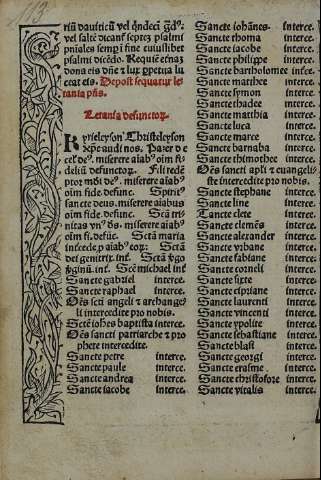 riũ dauiticũ vel q̃ndeci gͣdꝰ.
vel saltẽ dicant̃ septez psalmi
pñiales semp̱ ĩ fine cuiuslibet
psalmi dicẽdo. Requiẽ eťnaz
dona eis dñe ⁊ lux p̱petua lu
ceat eis. Depost sequatur le
tania p̃ns.
Letania defunctoꝝ.
Kyrieleyson Christeleyson
xp̃e audi nos. Pater de
cel' deꝰ. miserere aĩabꝰ oĩm fi-
deliũ defunctoꝝ. Fili redẽ
ptor mũdi deꝰ. miserere aĩabꝰ
oĩm fide. defunc. Spirit9
sancte deus. miserere aĩabus
oĩm fide. defunc. Scã tri-
nitas vnꝰ dꝰ. miserere aĩabꝰ
oĩm fi. defũc. Sctã maria
intercede p̱ aĩabꝰ eoꝝ. Sctã
dei genitrix int̃. Sctã ṽgo
ṽginũ. int̃. Scẽ michael int̃
Sancte gabriel interce.
Sancte raphael interce.
Oẽs scti angeli ⁊ archange-
li intercedite pro nobis.
Sctẽ iohẽs baptista interce.
Oẽs sancti patriarche ⁊ pro
phete intercedite.
Sancte petre interce.
Sancte paule interce.
Sancte andrea interce.
Sancte iacobe interce.
Sancte iohãnes. interce.
Sancte thoma interce.
Sancte iacobe interce.
Sancte philippe interce.
Sancte bartholomee int̃ce.
Sancte mathee interce.
Sancte symon interce.
Sancte thadee interce.
Sancte matthia interce.
Sancte luca interce.
Sancte marce interce.
Sancte barnaba interce.
Sancte thimothee interce.
Oẽs sancti apl̃i ⁊ euangeli-
ste intercedite pro nobis.
Sancte stephane interce.
Sancte line interce.
Sancte clete interce.
Sancte clemẽs interce.
Sancte alexander interce.
Sancte vrbane interce.
Sancte fabiane interce.
Sancte corneli interce.
Sancte sixte interce.
Sancte cipriane interce.
Sancte laurenti interce.
Sancte vincenti interce.
Sancte ypolite interce.
Sancte sebastiane interce.
Sancte blasi interce.
Sancte georgi interce.
Sancte erasme. interce.
Sancte christofore interce.
Sancte vitalis interce.